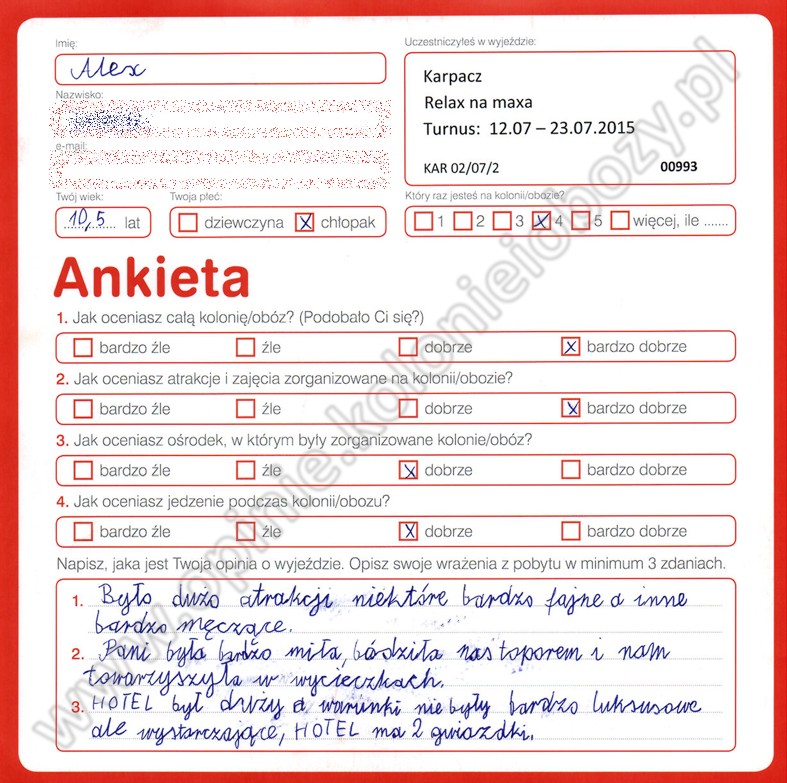 Imię:
Alex
Nazwisko:
e-mail:
Twój wiek:
10,5 lat
Twoja płeć:
dziewczyna X chłopak
Uczestniczyłeś w wyjeździe:
Karpacz
Relax na maxa
Turnus: 12.07 – 23.07.2015
KAR 02/07/2 00993
Który raz jesteś na kolonii/obozie?
1 2 3 X 4 5 więcej, ile .......
Ankieta
1. Jak oceniasz całą kolonię/obóz? (Podobało Ci się?)
bardzo źle źle dobrze X bardzo dobrze
2. Jak oceniasz atrakcje i zajęcia zorganizowane na kolonii/obozie?
bardzo źle źle dobrze X bardzo dobrze
3. Jak oceniasz ośrodek, w którym były zorganizowane kolonie/obóz?
bardzo źle źle X dobrze bardzo dobrze
4. Jak oceniasz jedzenie podczas kolonii/obozu?
bardzo źle źle X dobrze bardzo dobrze
Napisz, jaka jest Twoja opinia o wyjeździe. Opisz swoje wrażenia z pobytu w minimum 3 zdaniach.
1. Było dużo atrakcji niektóre bardzo fajne a inne
bardzo męczące.
2. Pani była bardzo miła, bódziła nas toporem i nam
towarzyszyła w wycieczkach.
3. HOTEL był duży a warunki nie były bardzo luksusowe
ale wystarczające, HOTEL ma 2 gwiazdki.
www.opinie.kolonieiobozy.pl